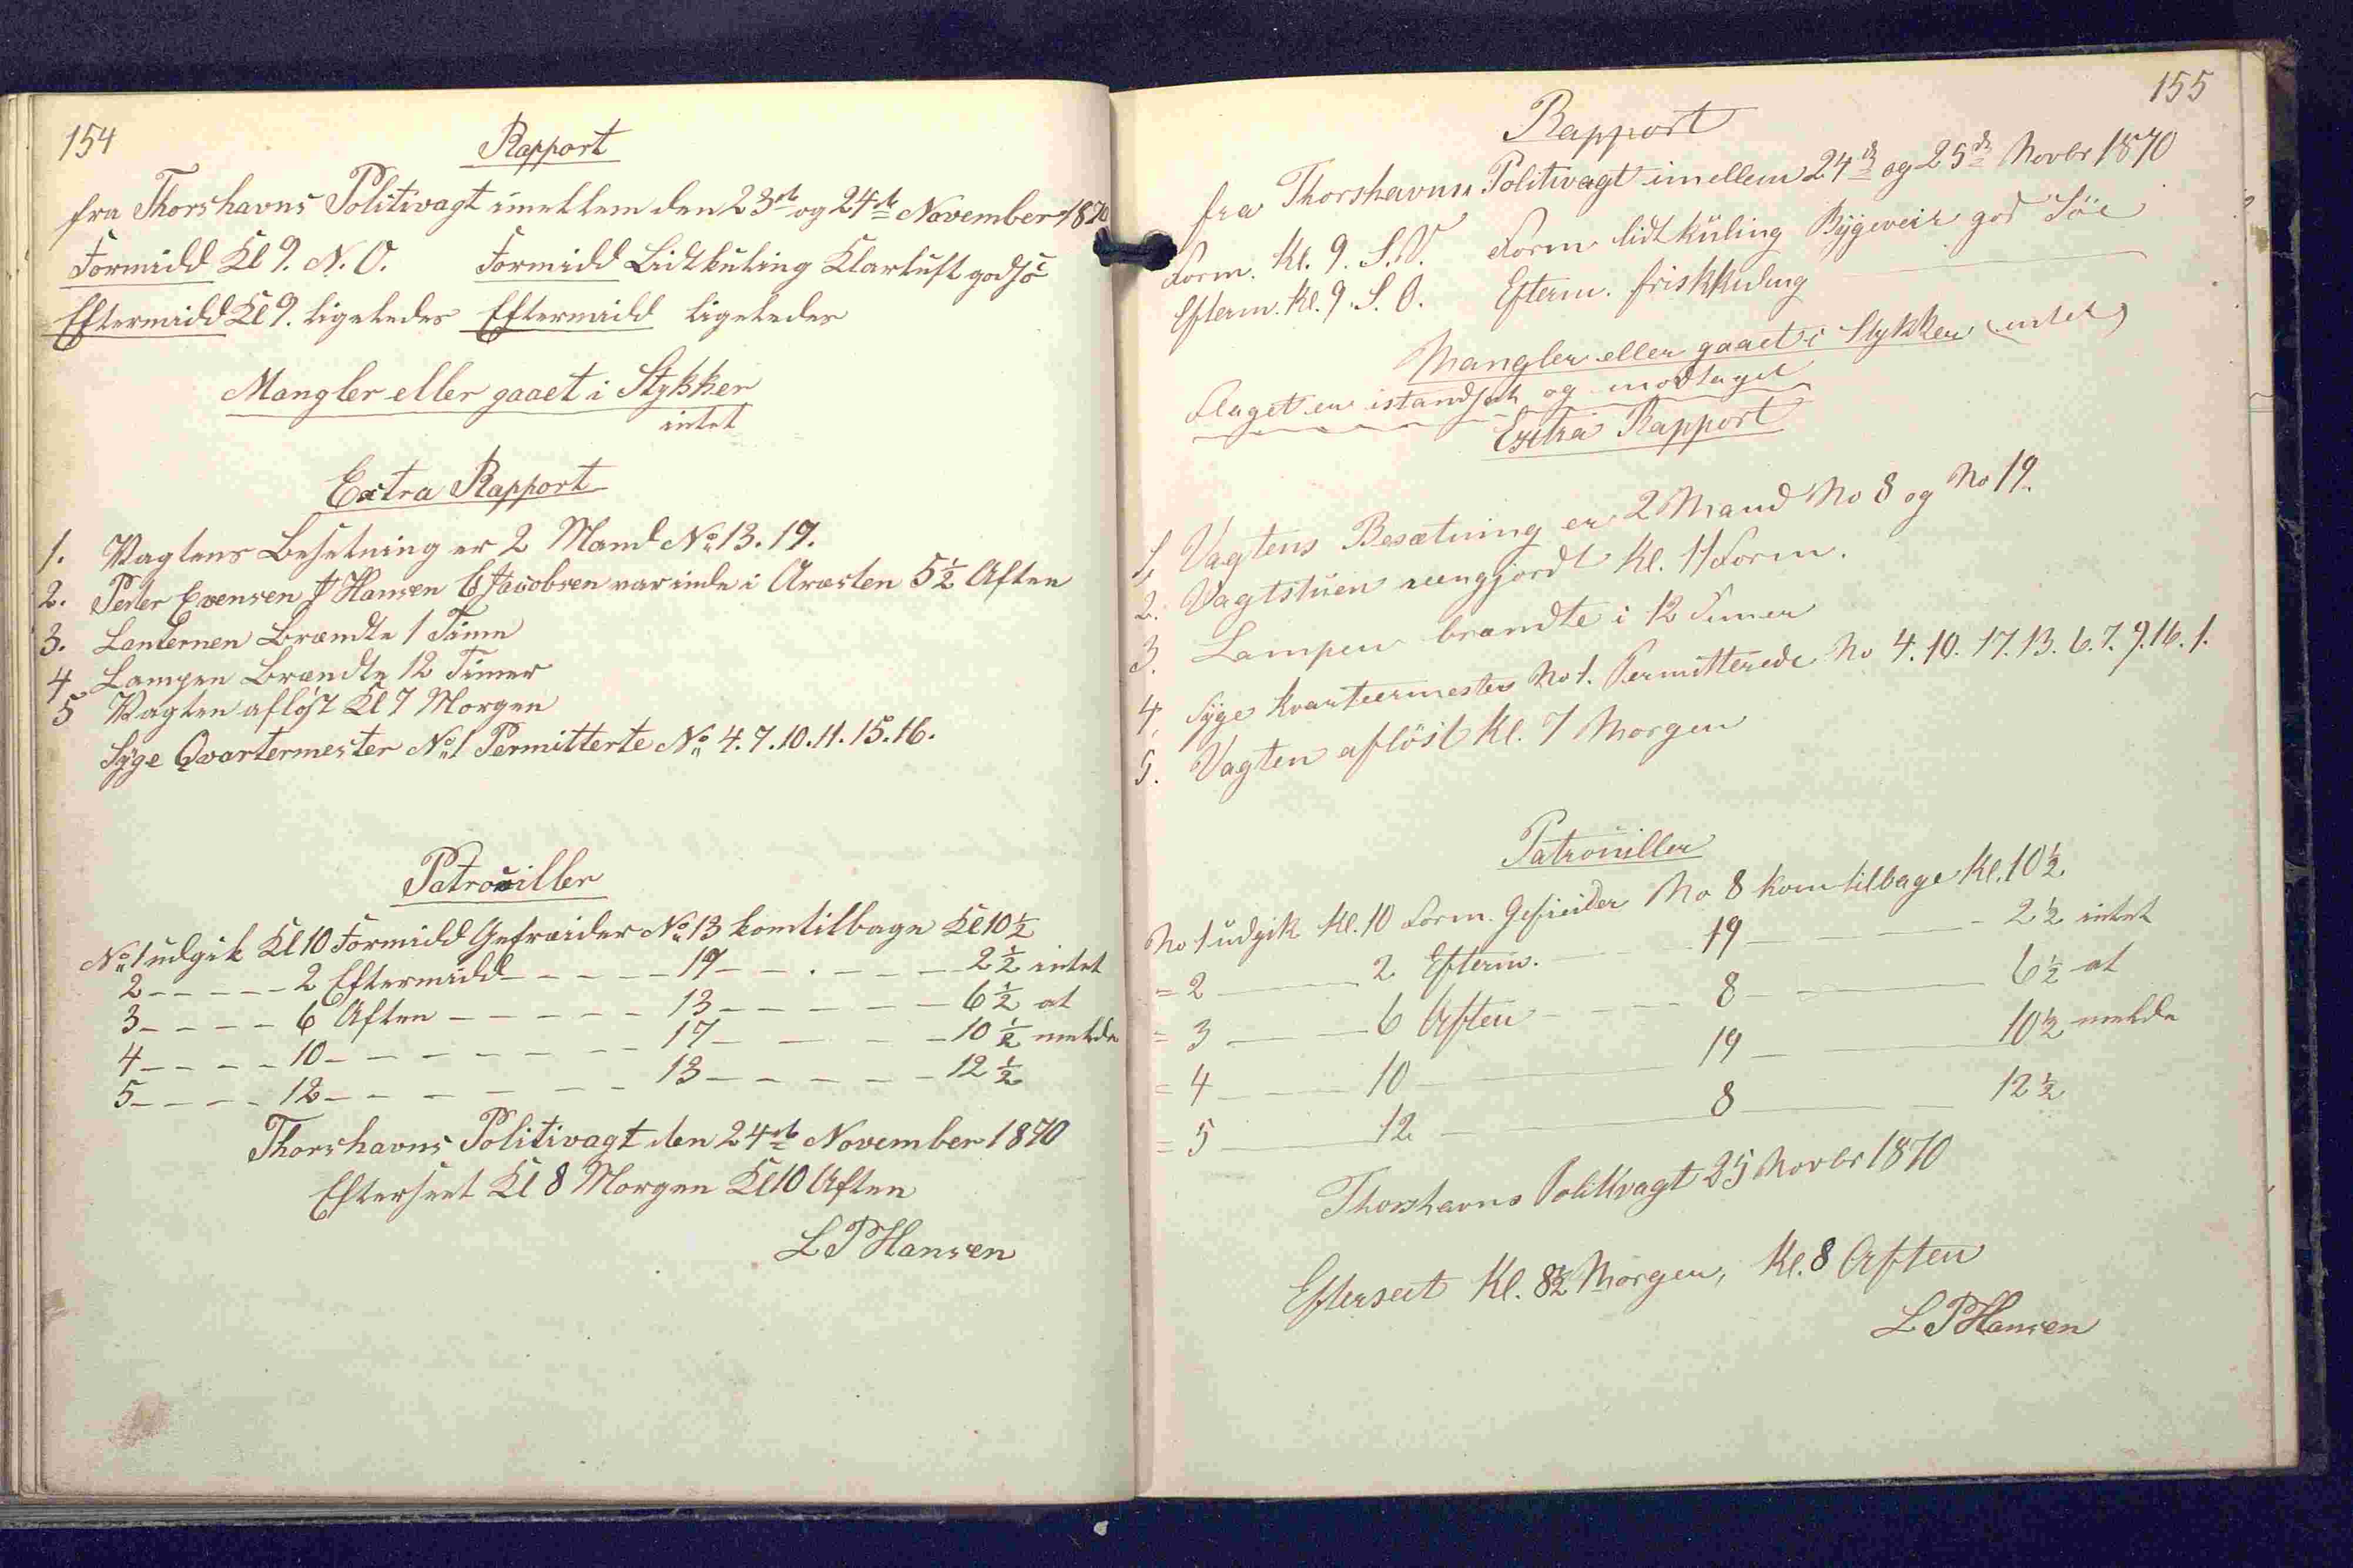 154
Rapport
fra Thorshavns Politivagt imellem den 23de og 24de November 1870
Formidd Kl 9. N. O. Formidd Lidtkuling Klarluft god Sö
Eftermidd Kl 9. ligeledes Eftermidd ligeledes
Mangler eller gaaet i Stykker
intet
Extra Rapport
1. Vagtens Besetning er 2 Mand No 13. 19.
2. Peter Evensen J Hansen E Jacobsen var inde i Aræsten 5½ Aften
3. Lanternen Brændte 1 Time
4 Lampen Brændte 12 Timer
5 Vagten afløst Kl 7 Morgen
Syge Qvartermester No 1 Permitterte No 4. 7. 10. 11. 15. 16.
Patrouiller
No 1 udgik Kl 10 Formidd Gefreider No 13 kom tilbage Kl 10½
2 - - - - - 2 Eftermidd - - - - - 19 - - . - - - - 2½ intet
3 - - - - 6 Aften - - - - - 13 - - - - - 6½ at
4 - - - - 10 - - - - - - - 17 - - - - 10½ melde
5 - - - - 12 - - - - - - 13 - - - - - 12½
Thorshavns Politivagt den 24de November 1870
Efterseet Kl 8 Morgen Kl 10 Aften
L P Hansen
155
Rapport
fra Thorshavns Politivagt imellem 24de og 25de Novbr 1870
Form. Kl. 9. S. V. Form lidt küling Bÿgeveir god Söe
Efterm. Kl. 9. S. O. Efterm. friskkuling
Mangler eller gaaet i Stykker (intet)
Flaget er istandsat og modtaget
Extra Rapport
1. Vagtens Besætning er 2 Mand No 8 og No 19.
2. Vagtstüen reengjordt Kl. 11 Form.
3. Lampen brændte i 12 Timer
4. Sÿge Kvarteermester No 1. Permitterede No 4. 10. 17. 13. 6. 7. 9. 16. 1.
5. Vagten aflöst Kl. 7 Morgen
Patroüiller
No 1 üdgik Kl. 10 Form. Gefreider No 8 kom tilbage Kl. 10½
= 2 — 2 Efterm. — 19 — 2½ intet
= 3 — 6 Aften — 8 — 6½ at
= 4 — 10 — 19 — 10½ melde
= 5 — 12 — 8 — 12½
Thorshavns Politivagt 25 Novbr 1870
Efterseet Kl. 8½ Morgen, Kl. 8 Aften
L P Hansen